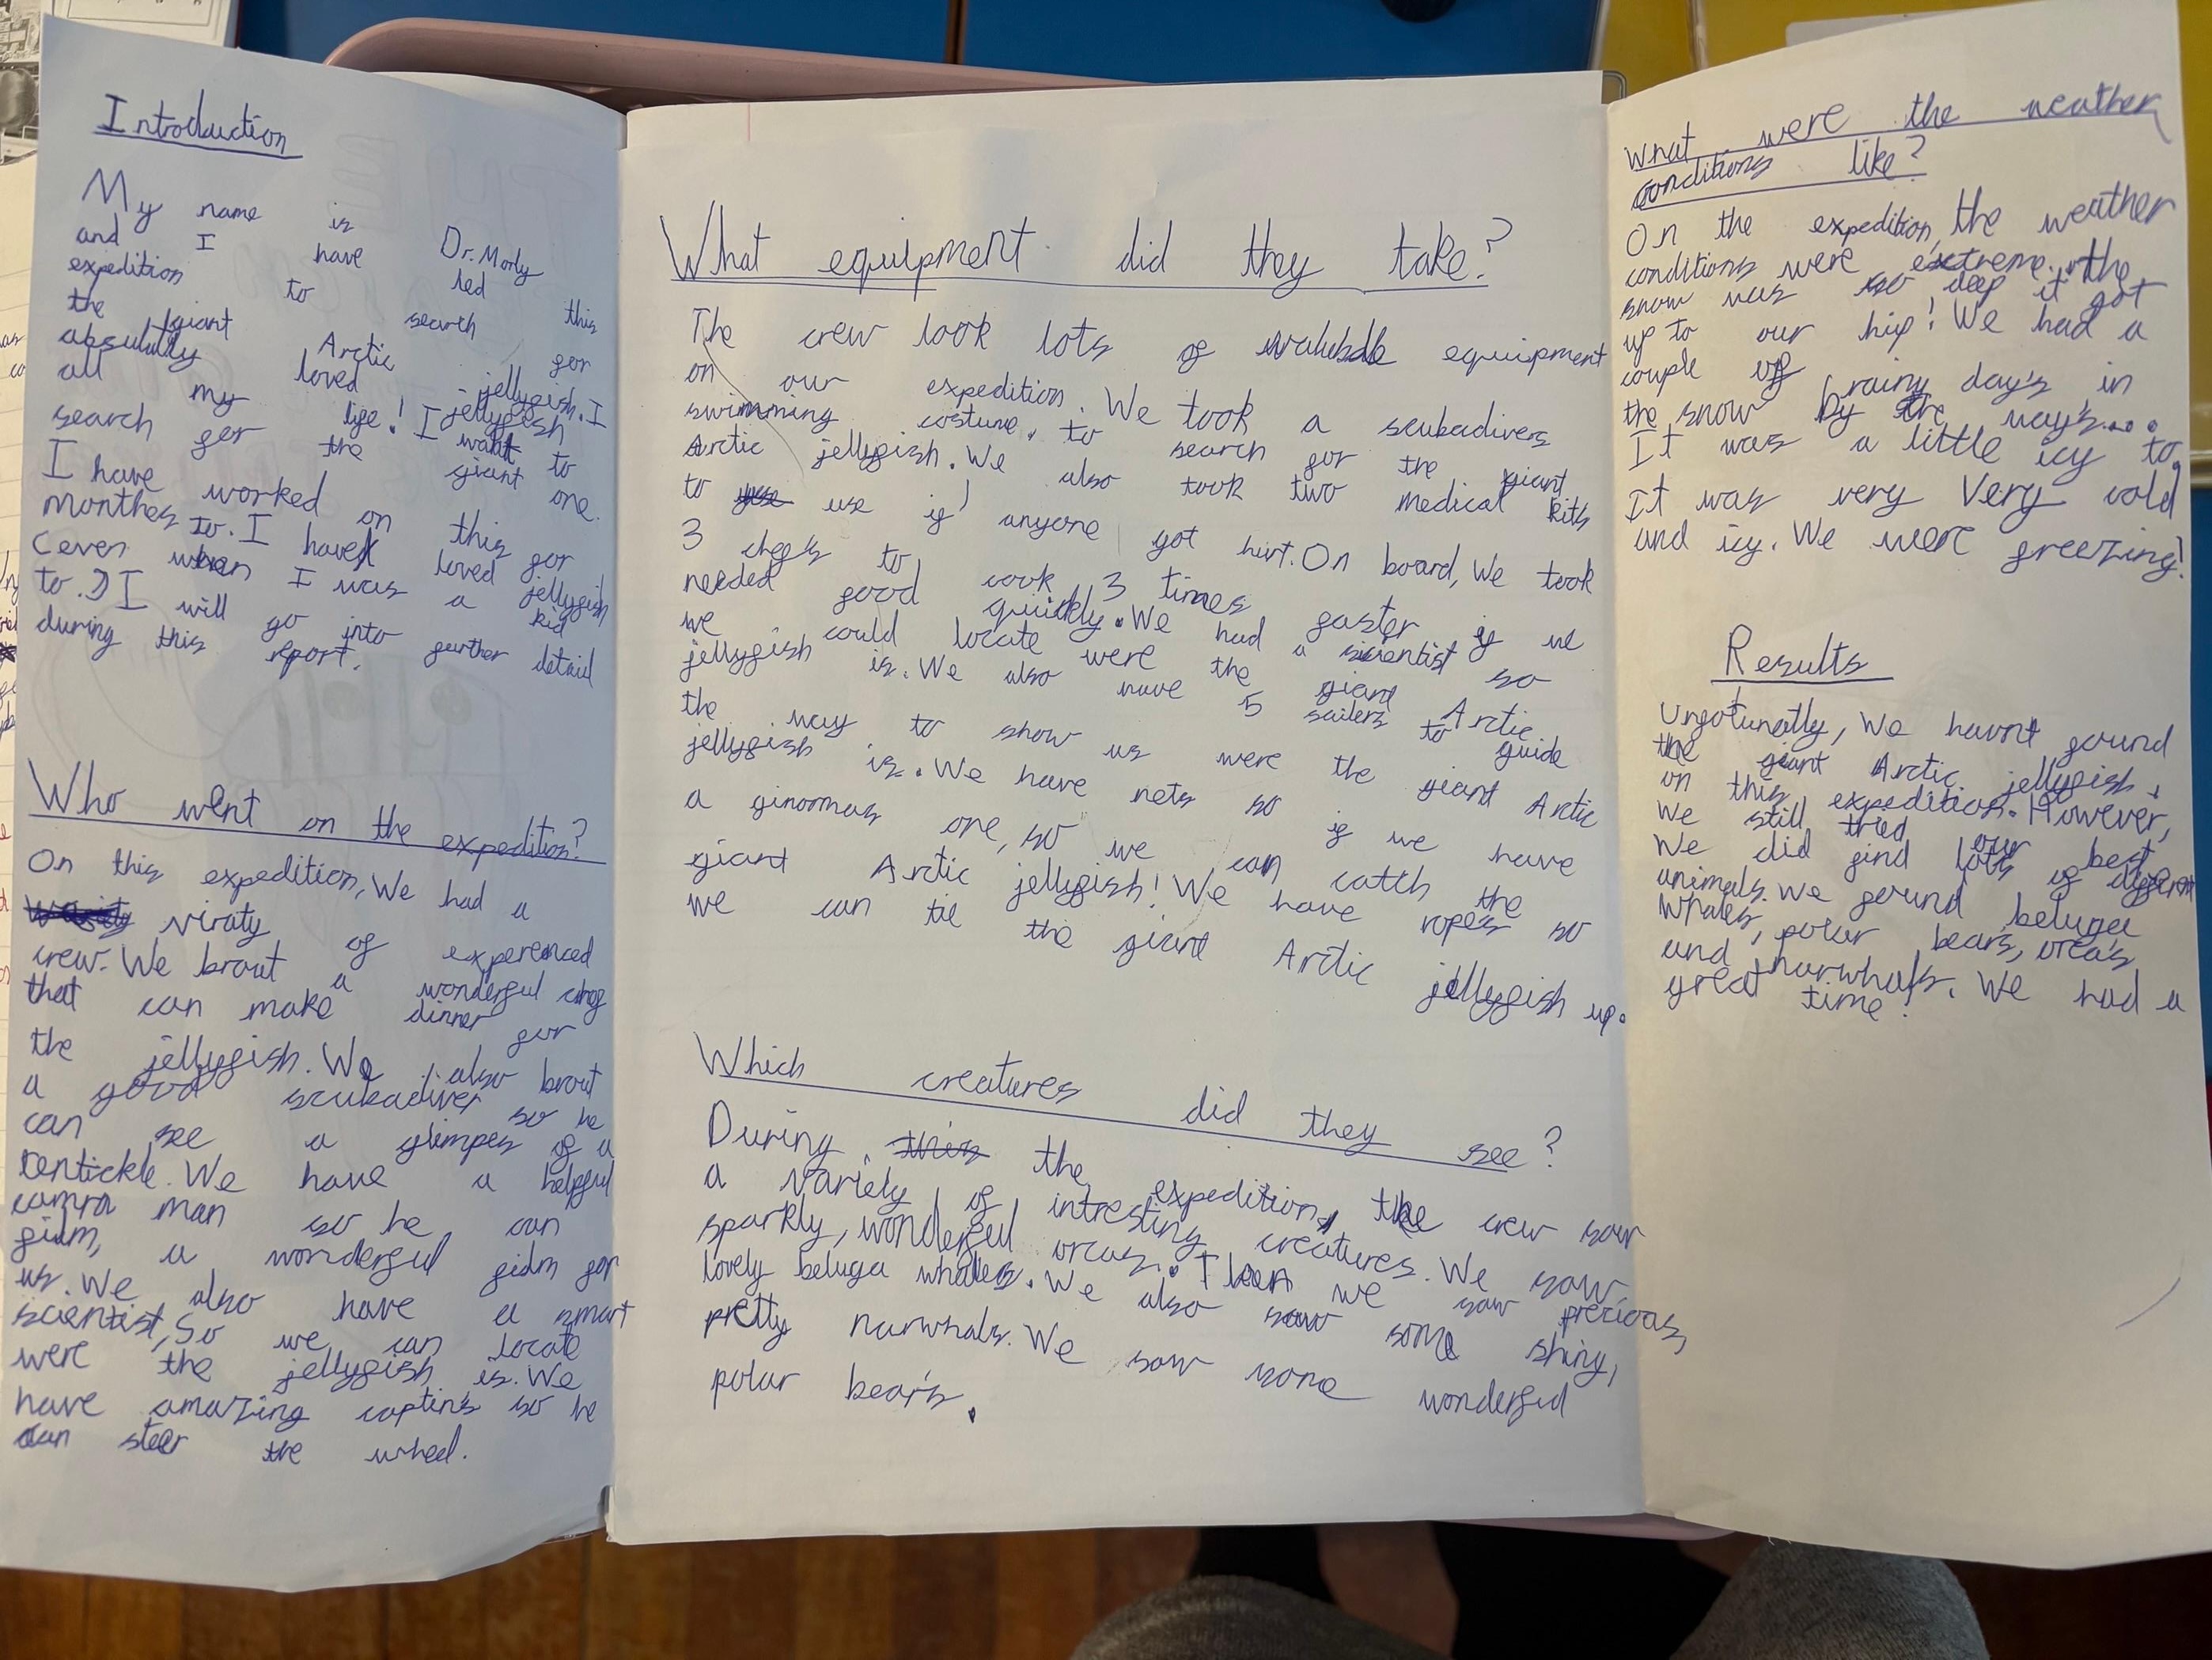 Introduction
My name is Dr. Morly
and I have led this
expedition to search for
the giant Arctic jellyfish. I
absulutly loved jellyfish
all my life! I want to
search for the giant one.
I have worked on this for
monthes to. I have loved jellyfish
(even when I was a kid
to.) I will go into further detail
during this report.
Who went on the expedition?
On this expedition, We had a
viraty of experenced
crew. We brout a wonderful chef
that can make dinner for
the jellyfish. We also brout
a good scubadiver so he
can see a glimpes of a
tentickle. We have a helpful
camra man so he can
film, a wonderful film for
us. We also have a smart
scientist, So we can locate
were the jellyfish is. We
have amazing captin's so he
can steer the wheel.
What equipment did they take?
The crew look lots of valuable equipment
on our expedition. We took a scubadivers
swimming costume, to search for the giant
Arctic jellyfish. We also took two medical kits
to use if anyone got hurt. On board, We took
3 chefs to cook 3 times faster if we
needed good quickly. We had a scientist so
we could locate were the giant Arctic
jellyfish is. We also have 5 sailers to guide
the way to show us were the giant Arctic
jellyfish is. We have nets so if we have
a ginormas one, so we can catch the
giant Arctic jellyfish! We have ropes so
we can tie the giant Arctic jellyfish up.
Which creatures did they see?
During this the expedition, the crew saw
a variely of intresting creatures. We saw
sparkly, wonderful orcas. Then we saw precious,
lovely beluga whales. We also saw some shiny,
pretty narwhals. We saw some wonderful
polar bear's.
What were the weather
conditions like?
On the expedition, the weather
conditions were extreme. the
snow was so deep it got
up to our hip! We had a
couple of rainy day's in
the snow by the way's....
It was a little icy to.
It was very very cold
and icy. We were freezing!
Results
Unfotunatly, We havnt found
the giant Arctic jellyfish
on this expedition. However,
we still tried our best.
We did find lots of
animals. We found beluga
whales, polar bears, orca's
and narwhals. We had a
great time!